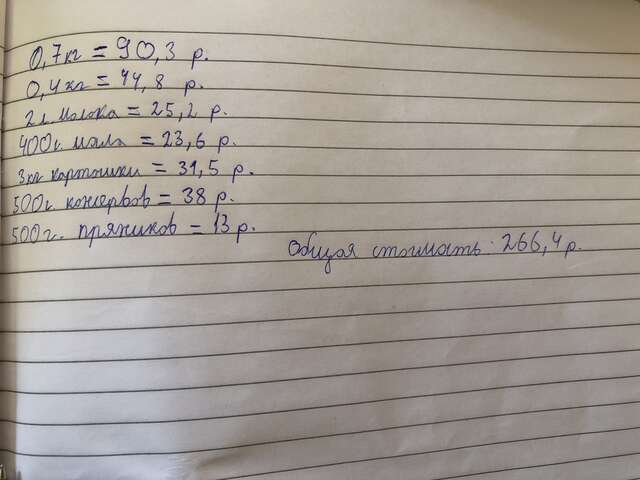 0,7 кг = 90,3 р.
0,4 кг = 44,8 р.
2 л молока = 25,2 р.
400г. масла = 23,6 р.
3кг картошки = 31,5 р.
500г. консервов = 38 р.
500г. пряников = 13 р.
Общая стоимость: 266,4 р.